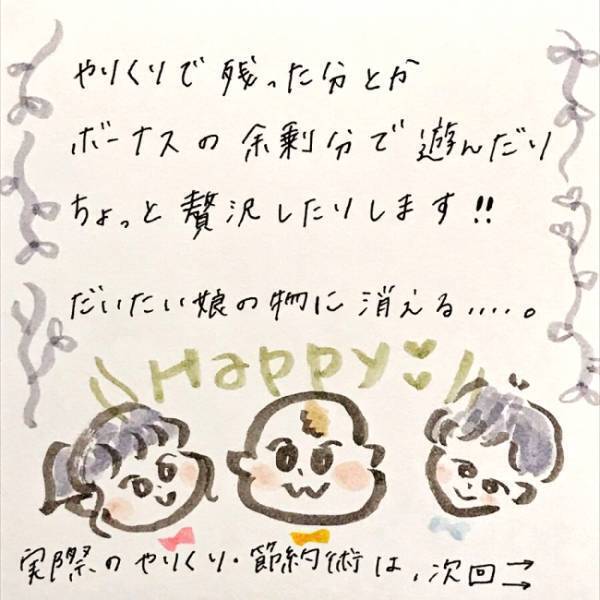 やりくりで残った分とか
ボーナスの余剰分で遊んだり
ちょっと贅沢したりします!!
だいたい娘の物に消える.....。
Happy
実際のやりくり・節約術は、次回→